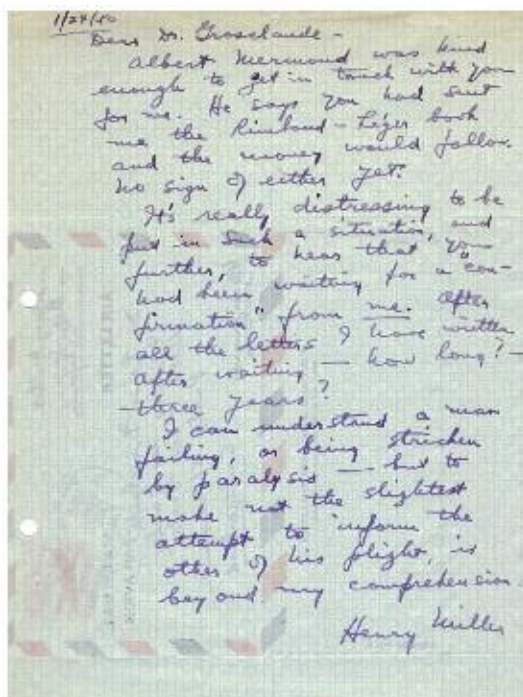 1/24/50
Dear Dr. Grosclaude -
Albert Mermoud was kind
enough to get in touch with you
for me. He says you had sent
me the Rimbaud - Léger book
and the money would follow.
No sign of either yet.
It's really distressing to be
put in such a situation, and
further, to hear that you
had been waiting for a "con-
firmation" from me. After
all the letters I have written
after waiting — how long? —
three years?
I can understand a man
failing, or being stricken
by paralysis — but to
make not the slightest
attempt to inform the
other of his plight, is
beyond my comprehension
Henry Miller